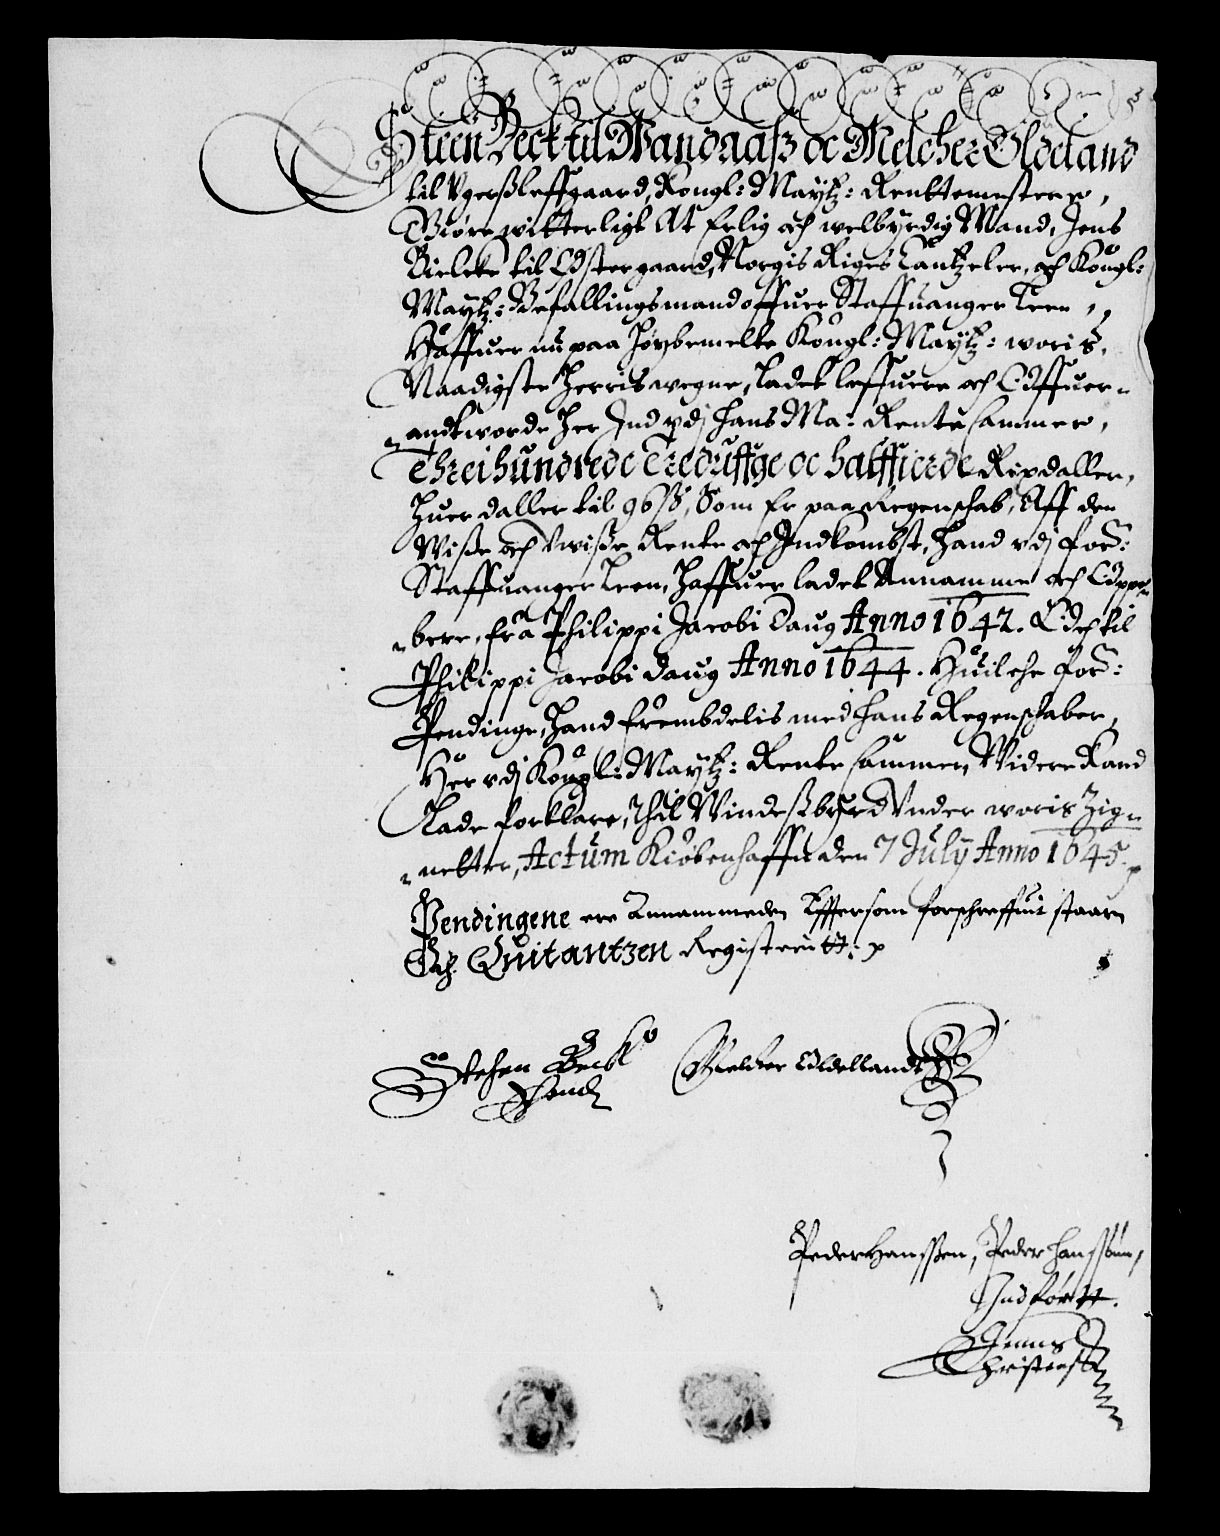 Steen Beck til Wandaaß oc Melcher Oldeland
til Vgerßleffgaard, Kongl: Maytz: Rentemestere,
Giøre witterligt At Erlig och welbyrdig Mand, Jens
Bielcke til Østergaard, Norgis Riges Cantzeler, och Kongl:
Maytz: Befallingsmand offuer Staffuanger Leen,
Haffuer nu paa høybemelte Kongl: Maytz: woris
Naadigste Herris wegne, ladet leffuere och Offuer-
andtworde her Ind vdj hans Ma: Rente Cammer,
Threihundrede Tredufge oc halffierde Rixdaller,
Huer daller til 96 ß, Som Er paa Regenschab, Aff den
Wiße och Vwiße Rente och Indkombst, hand vdj forn:
Staffuanger Leen, haffuer ladet Annamme och Oppe-
bere, fra Philippi Jacobi Daug Anno 1642. Och til
Philippi Jacobi daug Anno 1644. Huilche forn:
Pendinge, hand frembdelis med hans Regenschaber,
Her vdj Kongl: Maytz: Rente Cammer, Widere Kand
Lade forklare, Thil Windeßbyrd Vnder woris Zig-
netter, Actum Kiøbenhaffn den 7 July Anno 1645.
Pendingene ere Annammeden Effter som forschreffuit staar
Och Quitantzen Registeritt:
Stehen Beck
Eghend
Melcher Oldellandt
Peder Hanssen, Peder Hanssøn,
Indførtt.
Jenns
Christens